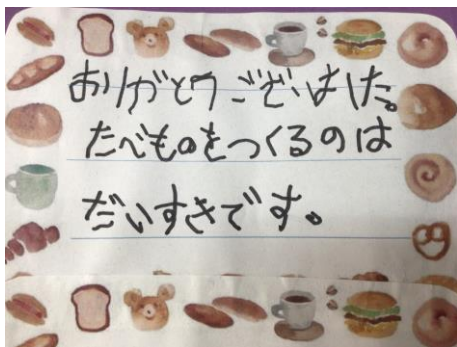 ありがとうございました。
たべものをつくるのは
だいすきです。